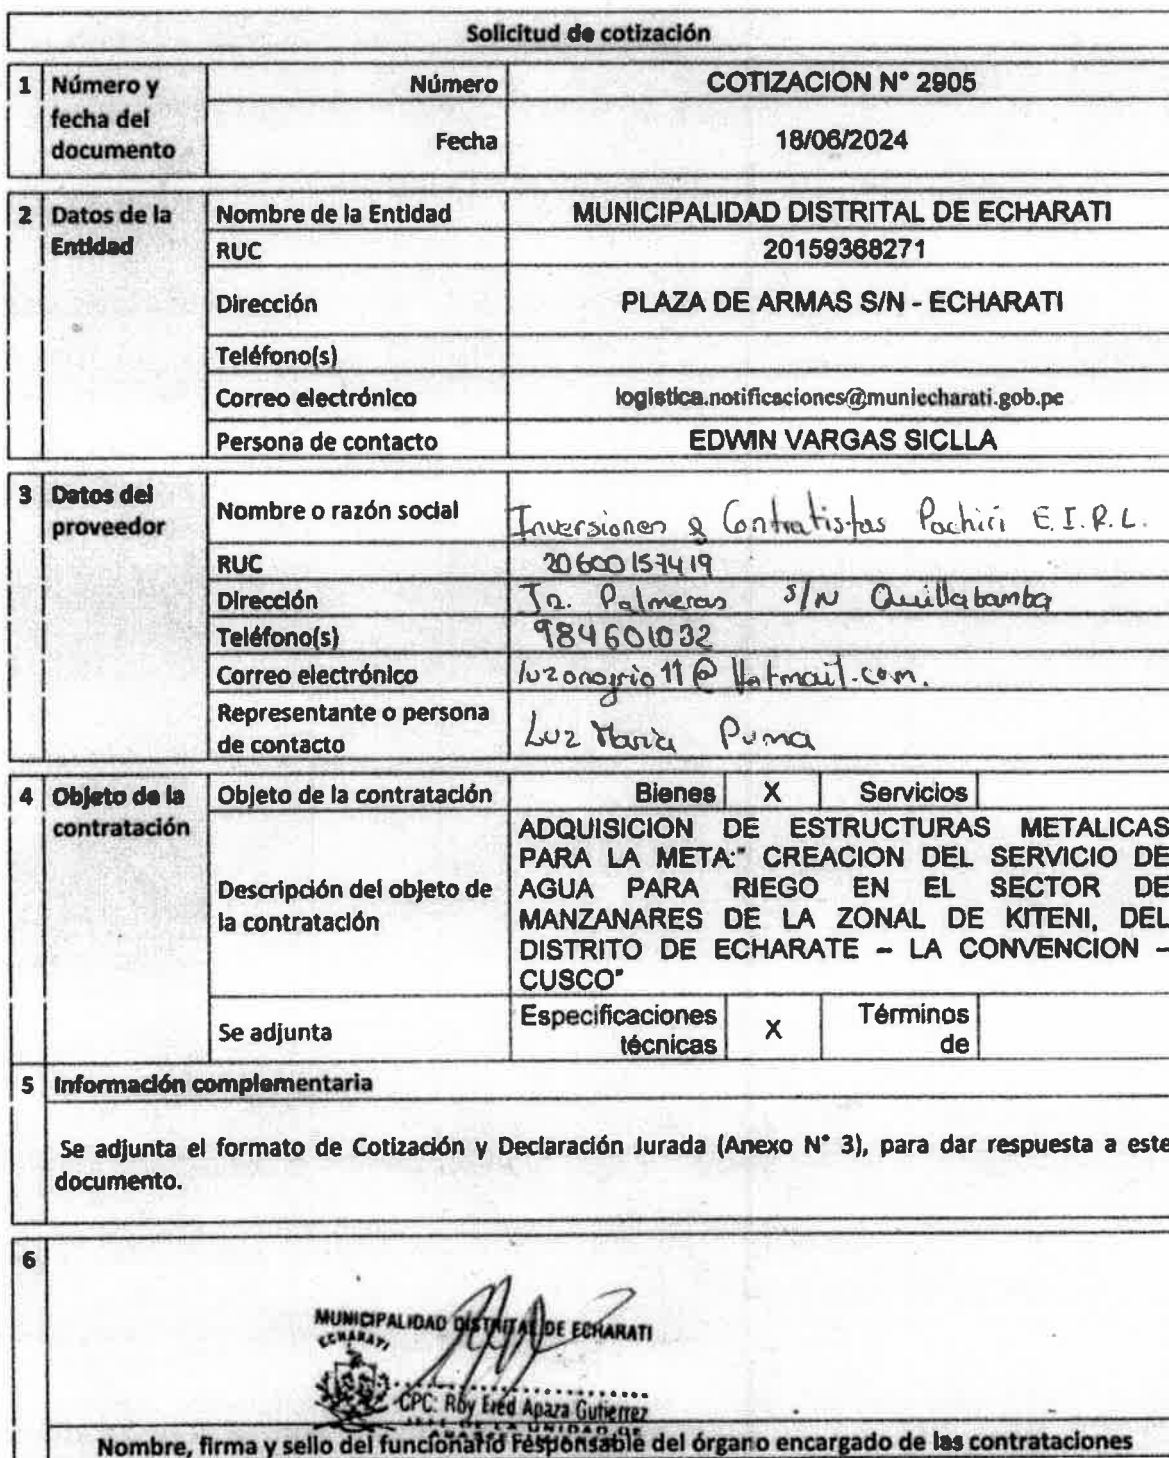 Solicitud de cotización
1 Número y fecha del documento
Número COTIZACION N° 2905
Fecha 18/06/2024
2 Datos de la Entidad
Nombre de la Entidad MUNICIPALIDAD DISTRITAL DE ECHARATI
RUC 20159368271
Dirección PLAZA DE ARMAS S/N - ECHARATI
Teléfono(s)
Correo electrónico logistica.notificaciones@muniecharati.gob.pe
Persona de contacto EDWIN VARGAS SICLLA
3 Datos del proveedor
Nombre o razón social Inversiones & Contratistas Pachiri E.I.R.L.
RUC 20600157419
Dirección Jr. Palmeras S/N Quillabamba
Teléfono(s) 984601032
Correo electrónico luzonofrio11@Hotmail.com.
Representante o persona de contacto Luz Maria Puma
4 Objeto de la contratación
Objeto de la contratación Bienes X Servicios
Descripción del objeto de la contratación
ADQUISICION DE ESTRUCTURAS METALICAS
PARA LA META:" CREACION DEL SERVICIO DE
AGUA PARA RIEGO EN EL SECTOR DE
MANZANARES DE LA ZONAL DE KITENI, DEL
DISTRITO DE ECHARATE – LA CONVENCION –
CUSCO"
Se adjunta Especificaciones técnicas X Términos de
5 Información complementaria
Se adjunta el formato de Cotización y Declaración Jurada (Anexo N° 3), para dar respuesta a este
documento.
6
MUNICIPALIDAD DISTRITAL DE ECHARATI
ECHARATI
CPC. Roy Fred Apaza Gutierrez
JEFE DE LA UNIDAD DE
Nombre, firma y sello del funcionario responsable del órgano encargado de las contrataciones